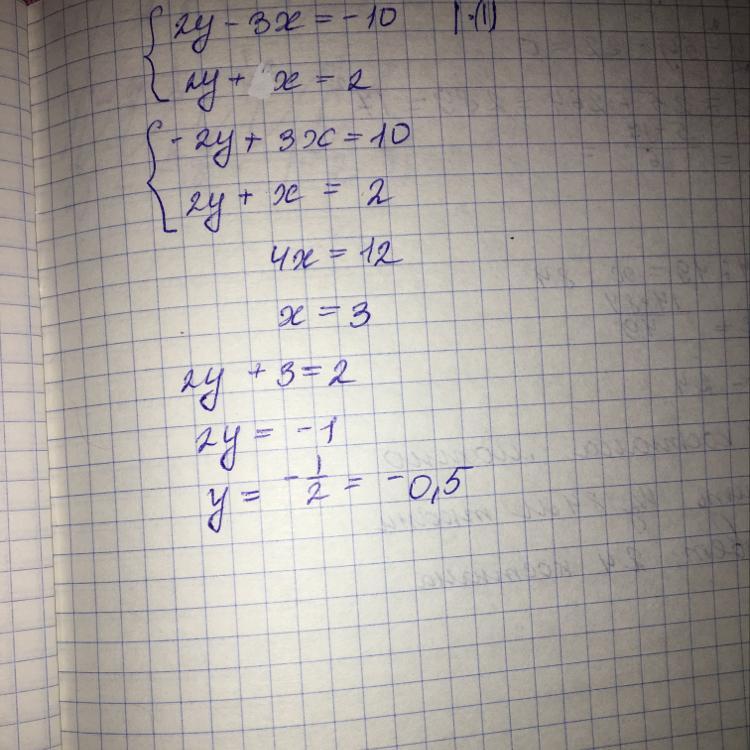 2y - 3x = -10 | · (1)
2y + x = 2
- 2y + 3x = 10
2y + x = 2
4x = 12
x = 3
2y + 3 = 2
2y = -1
y = - 1/2 = - 0,5